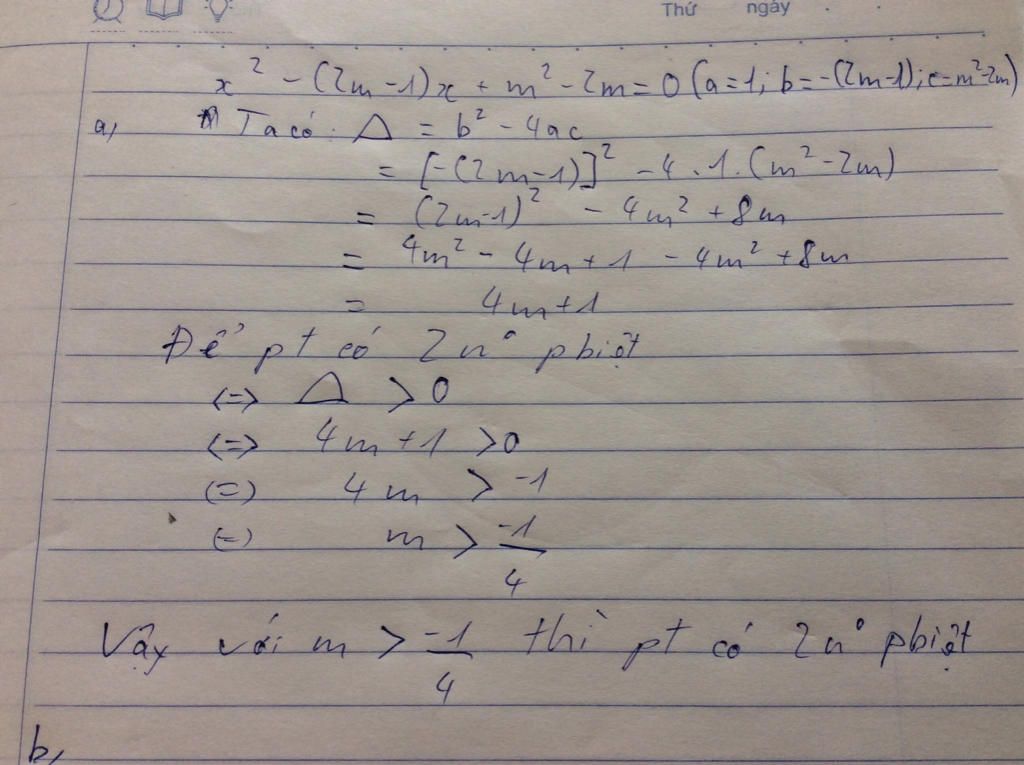 Thứ ngày . .
x² - (2m-1)x + m² - 2m = 0 (a=1; b=-(2m-1); c=m²-2m)
a, Ta có: Δ = b² - 4ac
= [-(2m-1)]² - 4 . 1 . (m² - 2m)
= (2m-1)² - 4m² + 8m
= 4m² - 4m + 1 - 4m² + 8m
= 4m + 1
Để pt có 2 n° pbiệt
<=> Δ > 0
<=> 4m + 1 > 0
(=) 4m > -1
(=) m > -1/4
Vậy với m > -1/4 thì pt có 2 n° pbiệt
b,